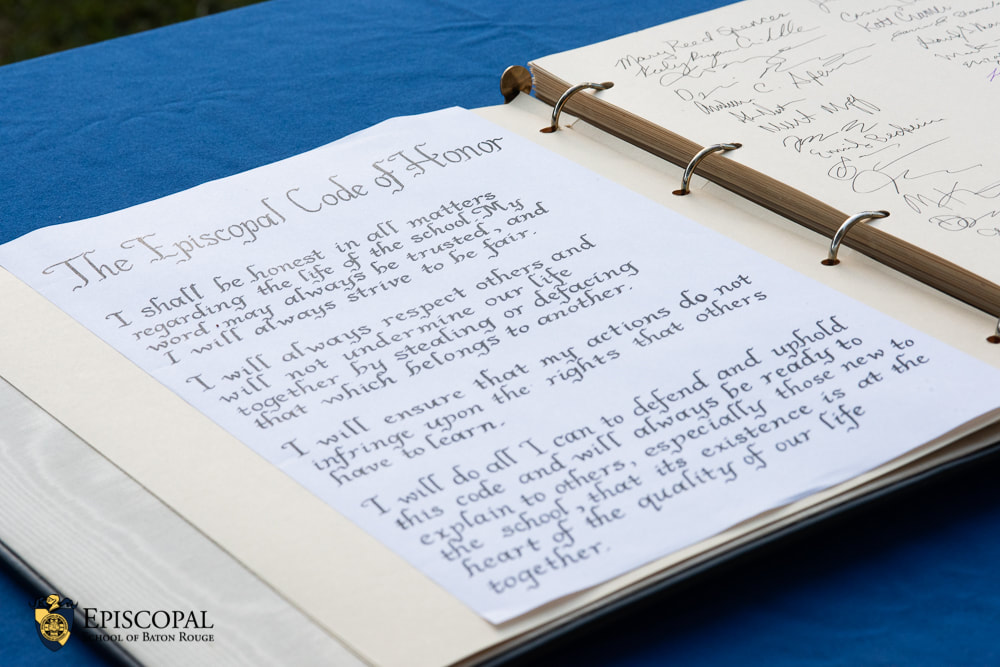 The Episcopal Code of Honor
I shall be honest in all matters
regarding the life of the school. My
word may always be trusted, and
I will always strive to be fair.
I will always respect others and
will not undermine our life
together by stealing or defacing
that which belongs to another.
I will ensure that my actions do not
infringe upon the rights that others
have to learn.
I will do all I can to defend and uphold
this code and will always be ready to
explain to others, especially those new to
the school, that its existence is at the
heart of the quality of our life
together.
Mary Reed Spencer
EPISCOPAL
SCHOOL OF BATON ROUGE